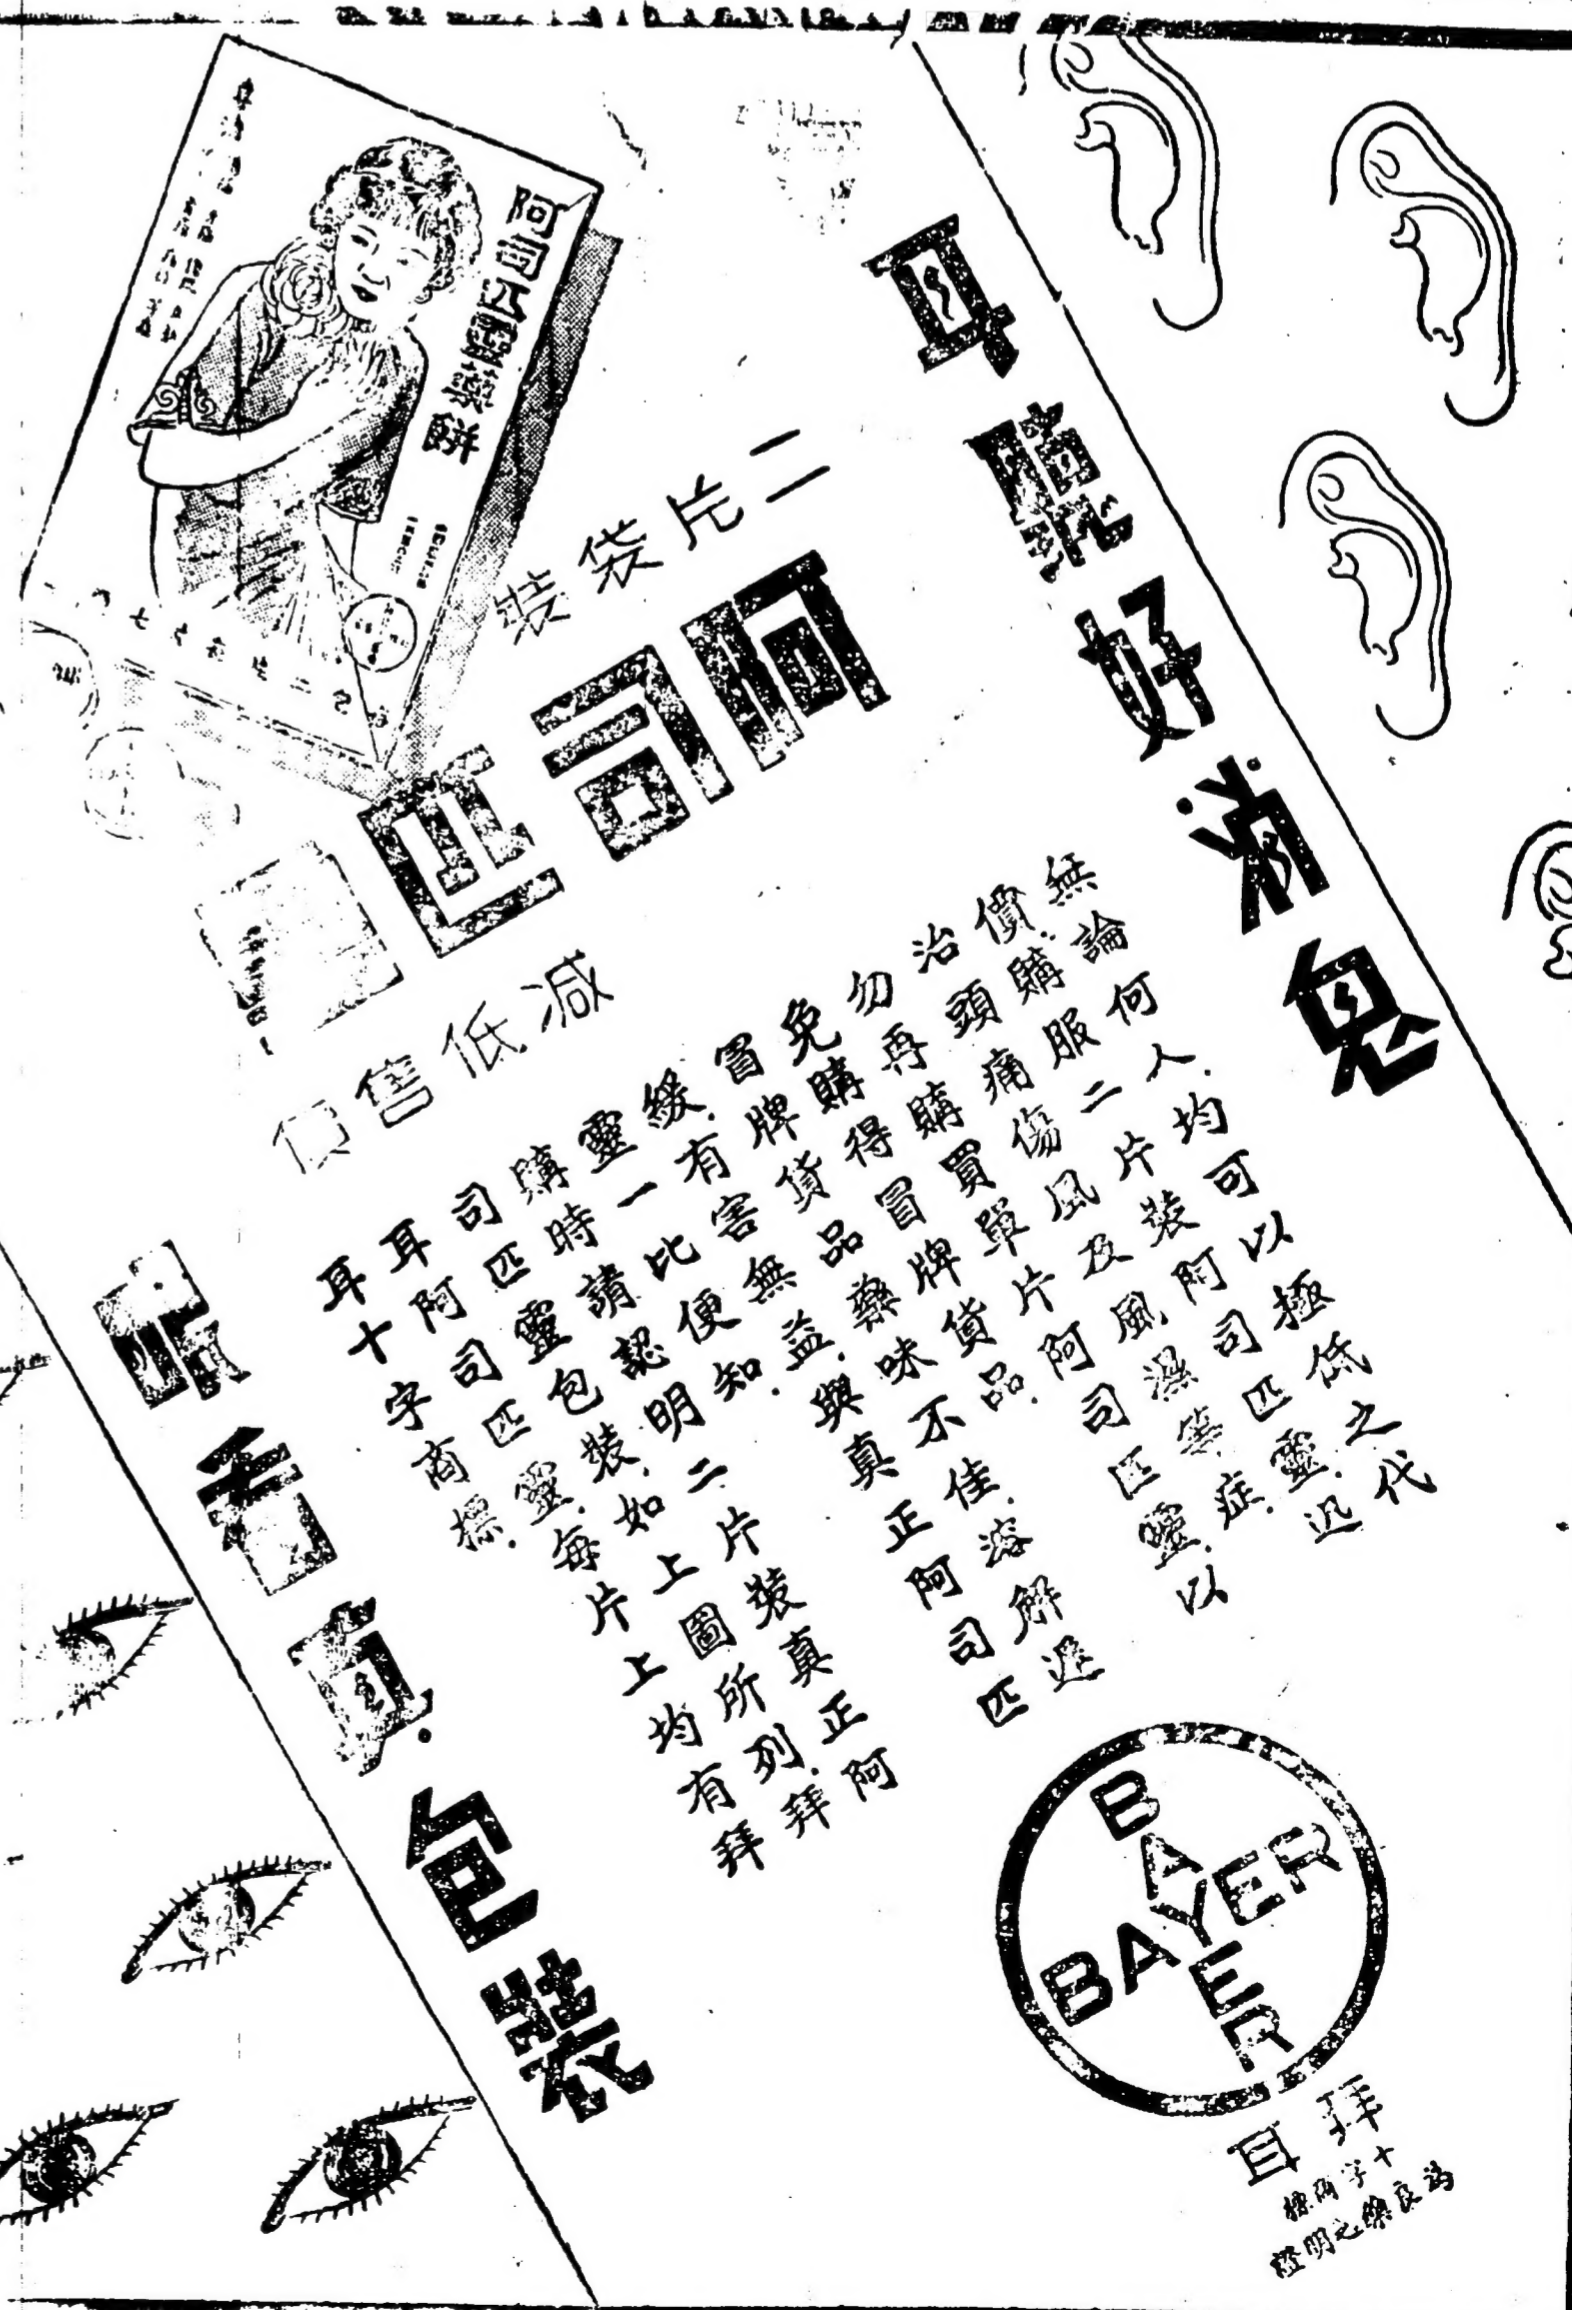 耳聽好消息
阿司匹靈藥餅
二片袋裝
阿司匹
減低售價
無論何人均可以極低之代
價購服二片裝阿司匹靈迅
治頭痛傷風及風濕等症
勿再購買單片阿司匹靈以
免購得冒牌貨品
冒牌貨品藥味不佳溶解遲
緩有害無益與真正阿司匹
靈一比便知
購時請認明二片裝真正阿
司匹靈包裝如上圖所列拜
耳阿司匹靈每片上均有拜
耳十字商標
眼看真包裝
BAYER
BAYER
拜耳
十字商標
為良藥之證明